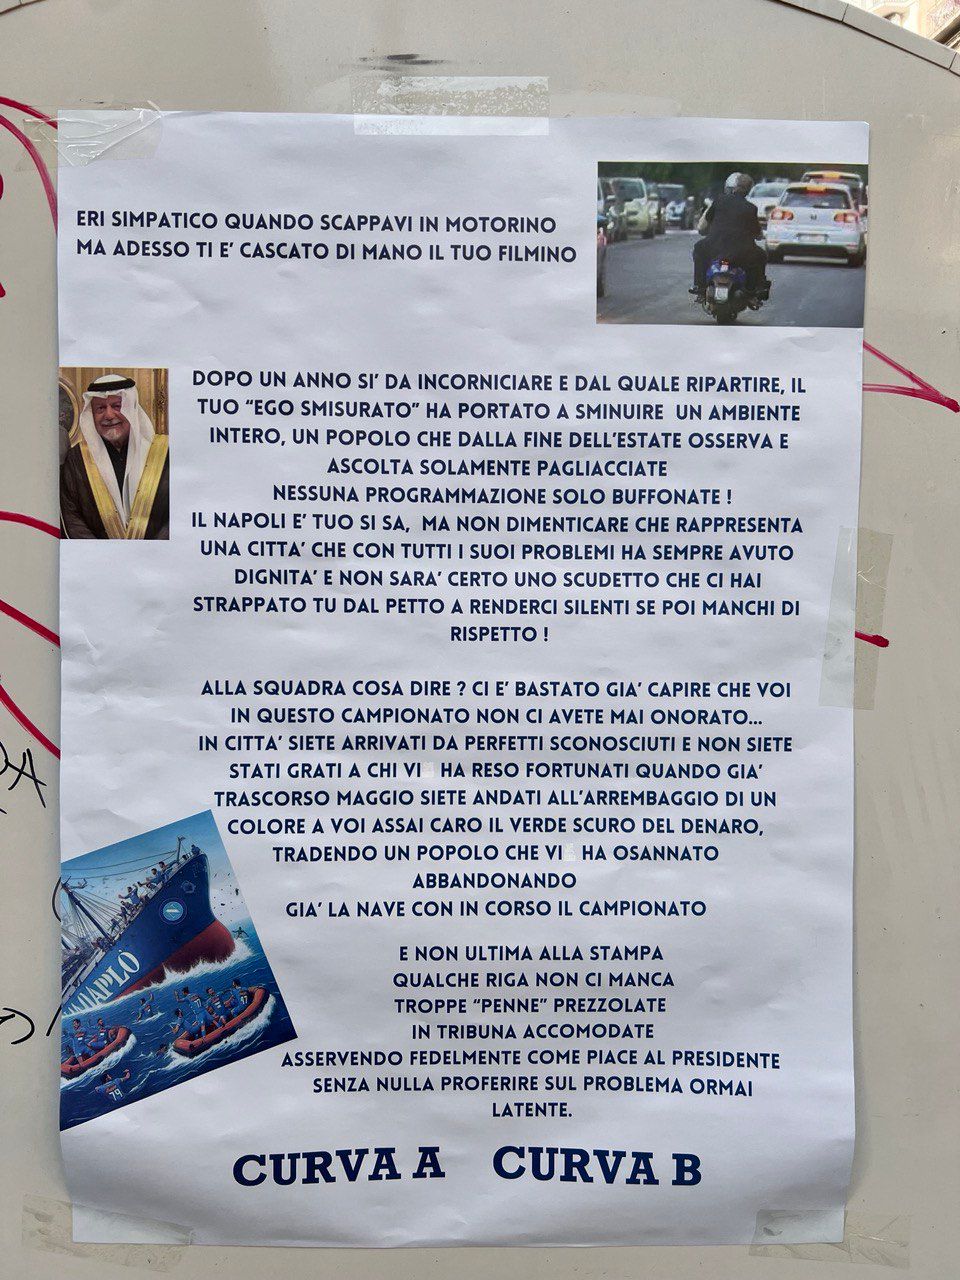 ERI SIMPATICO QUANDO SCAPPAVI IN MOTORINO
MA ADESSO TI E' CASCATO DI MANO IL TUO FILMINO
DOPO UN ANNO SI' DA INCORNICIARE E DAL QUALE RIPARTIRE, IL
TUO "EGO SMISURATO" HA PORTATO A SMINUIRE UN AMBIENTE
INTERO, UN POPOLO CHE DALLA FINE DELL'ESTATE OSSERVA E
ASCOLTA SOLAMENTE PAGLIACCIATE
NESSUNA PROGRAMMAZIONE SOLO BUFFONATE !
IL NAPOLI E' TUO SI SA, MA NON DIMENTICARE CHE RAPPRESENTA
UNA CITTA' CHE CON TUTTI I SUOI PROBLEMI HA SEMPRE AVUTO
DIGNITA' E NON SARA' CERTO UNO SCUDETTO CHE CI HAI
STRAPPATO TU DAL PETTO A RENDERCI SILENTI SE POI MANCHI DI
RISPETTO !
ALLA SQUADRA COSA DIRE ? CI E' BASTATO GIA' CAPIRE CHE VOI
IN QUESTO CAMPIONATO NON CI AVETE MAI ONORATO...
IN CITTA' SIETE ARRIVATI DA PERFETTI SCONOSCIUTI E NON SIETE
STATI GRATI A CHI VI HA RESO FORTUNATI QUANDO GIA'
TRASCORSO MAGGIO SIETE ANDATI ALL'ARREMBAGGIO DI UN
COLORE A VOI ASSAI CARO IL VERDE SCURO DEL DENARO,
TRADENDO UN POPOLO CHE VI HA OSANNATO
ABBANDONANDO
GIA' LA NAVE CON IN CORSO IL CAMPIONATO
E NON ULTIMA ALLA STAMPA
QUALCHE RIGA NON CI MANCA
TROPPE "PENNE" PREZZOLATE
IN TRIBUNA ACCOMODATE
ASSERVENDO FEDELMENTE COME PIACE AL PRESIDENTE
SENZA NULLA PROFERIRE SUL PROBLEMA ORMAI
LATENTE.
79
CURVA A CURVA B